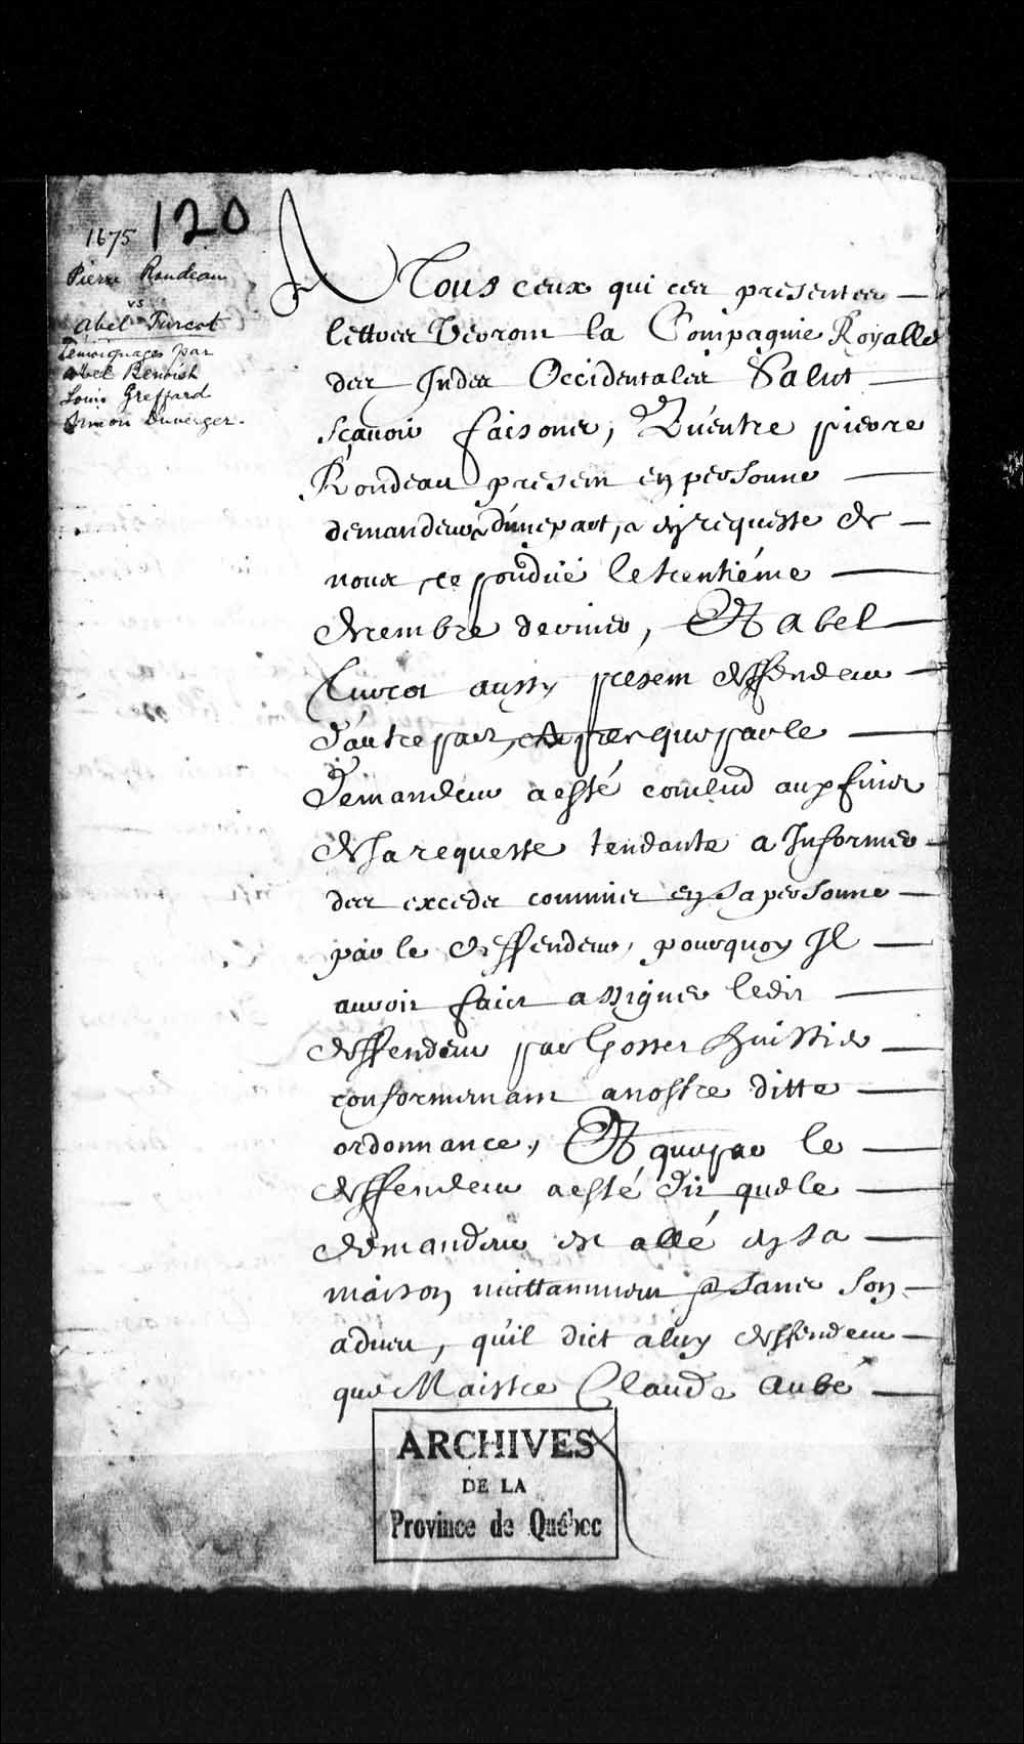 120
1675
Pierre Rondeau
vs
Abel Turcot
Temoignages par
Abel Benoist
Louis Greffard
Simon Duverger.
A Tous ceux qui ces presentes
lettres verront la Compagnie Royalle
des Indes Occidentales Salut
Sçavoir faisons, Qu'entre pierre
Rondeau present en personne
demandeur d'une part, a
nous le trentiéme
decembre dernier, Et Abel
Turcot aussy present deffendeur
d'autre part, que par le
Demandeur a esté conclud aux fins
de sa requeste tendante a Informer
des excedz commis en sa personne
par le deffendeur, pourquoy Il
auroit faict assigner ledit
deffendeur par Gosset huissier
conformement a nostre ditte
ordonnance, Et que par le
deffendeur a esté dit que le
demandeur est allé en sa
maison nuittamment sans son
adveu, qu'il dict a luy deffendeur
que Maistre Claude Aubé
ARCHIVES
DE LA
Province de Québec